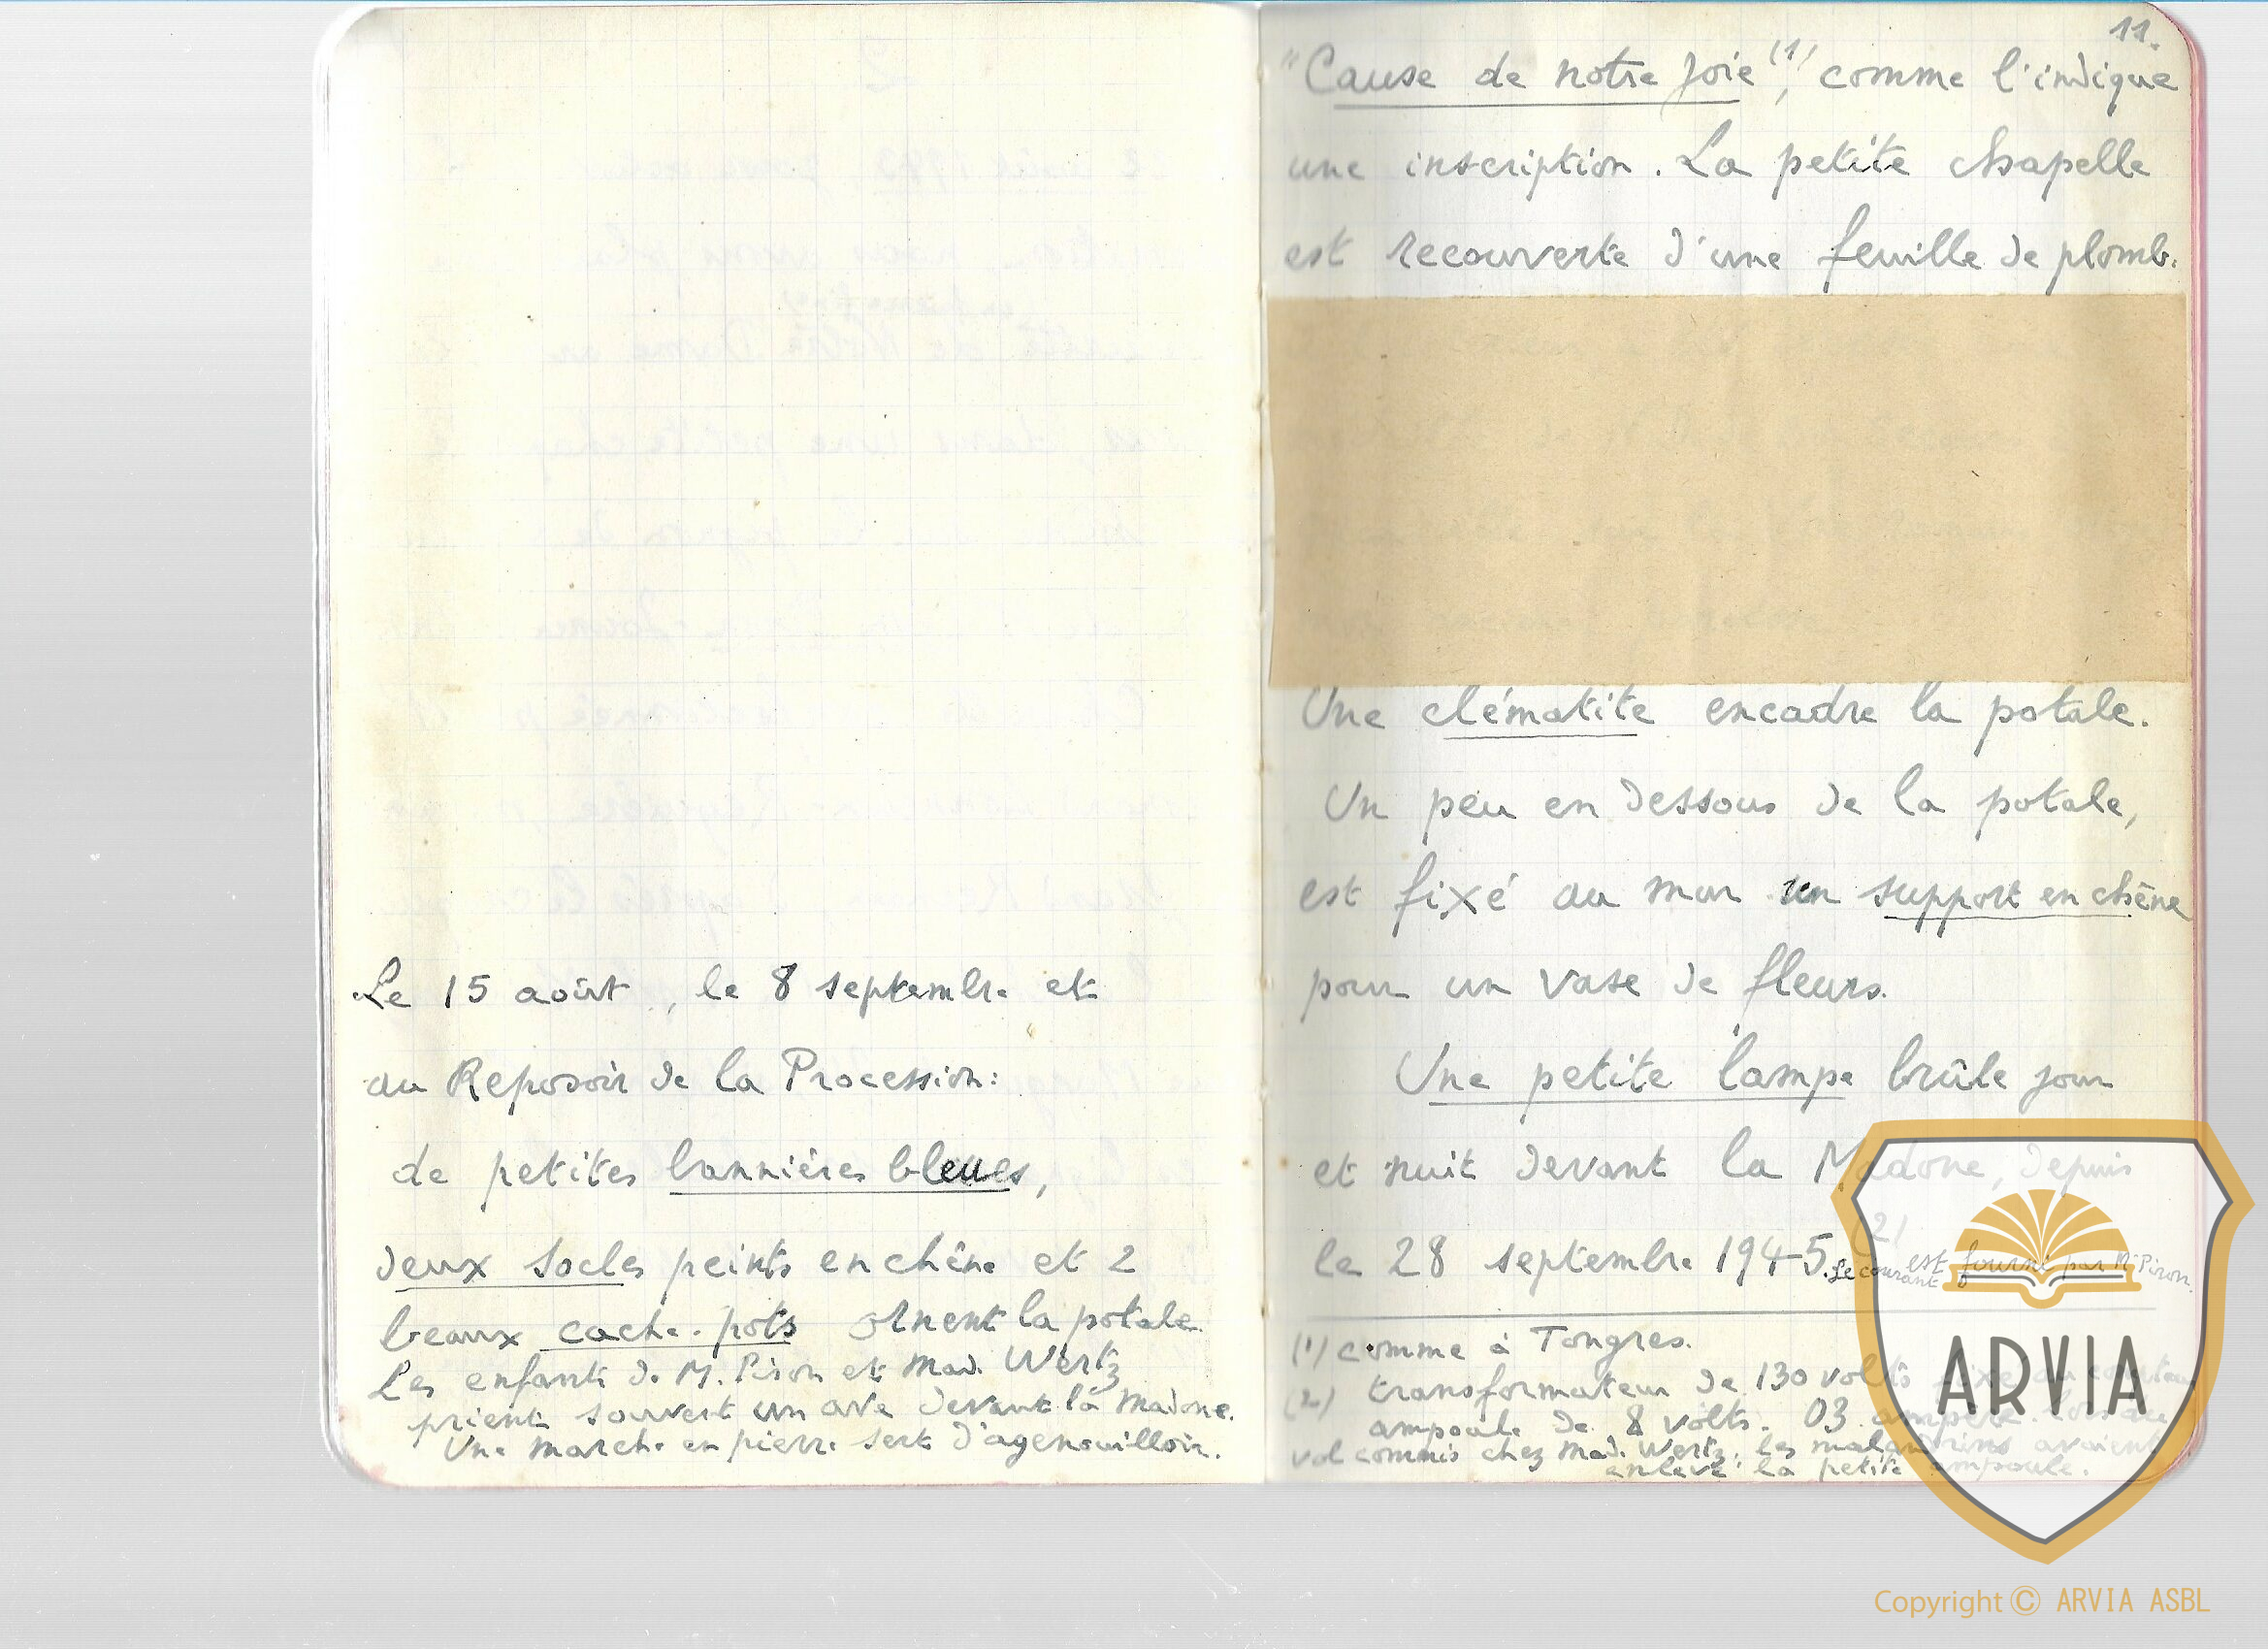 Le 15 août, le 8 septembre et
au Reposoir de la Procession:
de petites bannières bleues,
deux socles peints en chêne et 2
beaux cache-pots ornent la potale.
Les enfants de M. Piron et Mad. Wertz
prient souvent un ave devant la Madone.
Une marche en pierre sert d'agenouilloir.
11.
"Cause de notre joie (1)", comme l'indique
une inscription. La petite chapelle
est recouverte d'une feuille de plomb.
Une clématite encadre la potale.
Un peu en dessous de la potale,
est fixé au mur un support en chêne
pour un vase de fleurs.
Une petite lampe brûle jour
et nuit devant la Madone, depuis
le 28 septembre 1945. (2) Le courant est fourni par Mr Piron.
(1) comme à Tongres.
(2) transformateur de 130 volts fixé au
ampoule de 8 volts. 03 ampère. Lors du
vol commis chez Mad. Wertz, les malandrins avaient
enlevé la petite ampoule.
ARVIA
Copyright © ARVIA ASBL